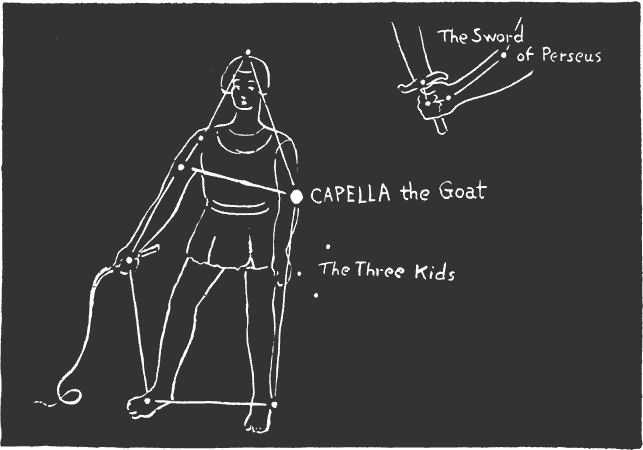 The Sword
of Perseus
CAPELLA the Goat
The Three Kids